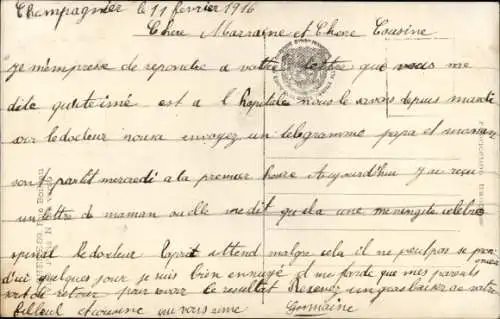 Champagnier le 11 février 1916
Chère Marraine et Chère Cousine
Je m'emprese de repondre a vottre lettre que vous me
dite qu est a l hopitale nous le savons depuis mardi
soir le docteur nousa envoyez un telegramme papa et maman
sont partit mercredi a la premier houre Aujourd'hui j'ai reçu
un lettre de maman ou elle me dit quela une meningite célébro
spinal le docteur attend malgre cela il ne peut pas se pronon
d'ici quelques jour je suis bien ennuyé il me tarde que mes parents
soit de retour pour avoir le resultat Recevez un gros baiser de votre
filleul et cousine que vous aime Germaine